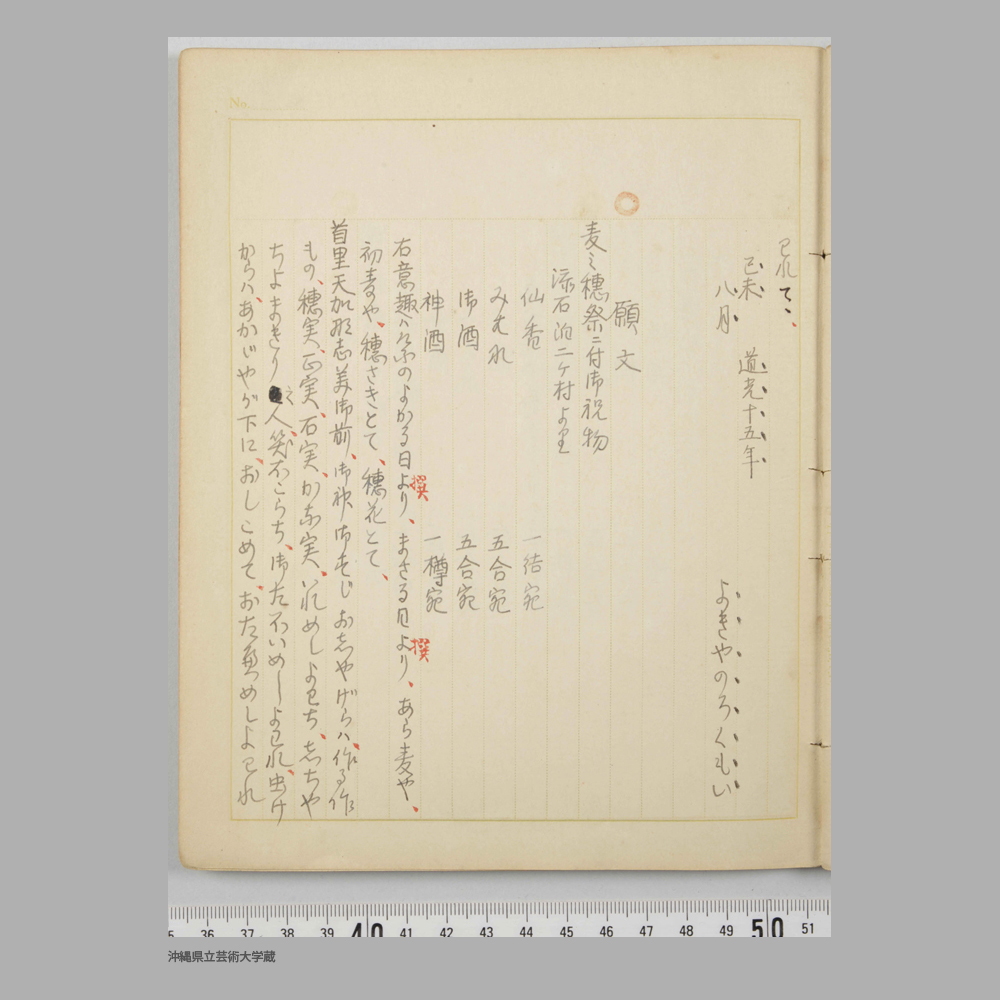 己れて、
己未 道光十五年
八月 よきやのろくもい
願文
麦之穂祭ニ付御祝物
添石泊二ケ村より
仙香 一結宛
みはれ 五合宛
御酒 五合宛
神酒 一樽宛
右意趣ハ のよかる日より、撰 まさる日より、撰 あら麦や、
初麦や、穂さきとて、穂花とて、
首里天加那志美御前、御神 おしやげらハ、作る作
もの、穂実、正実、石実、かな実、 めしよわち、志ちや
ちよ まきり 之人 笑 こらち、御た いめしよわれ、虫け
からハ、あかじやが下に、おしこめて、おた めしよわれ
No.
36 37 38 39 40 41 42 43 44 45 46 47 48 49 50 51
沖縄県立芸術大学蔵